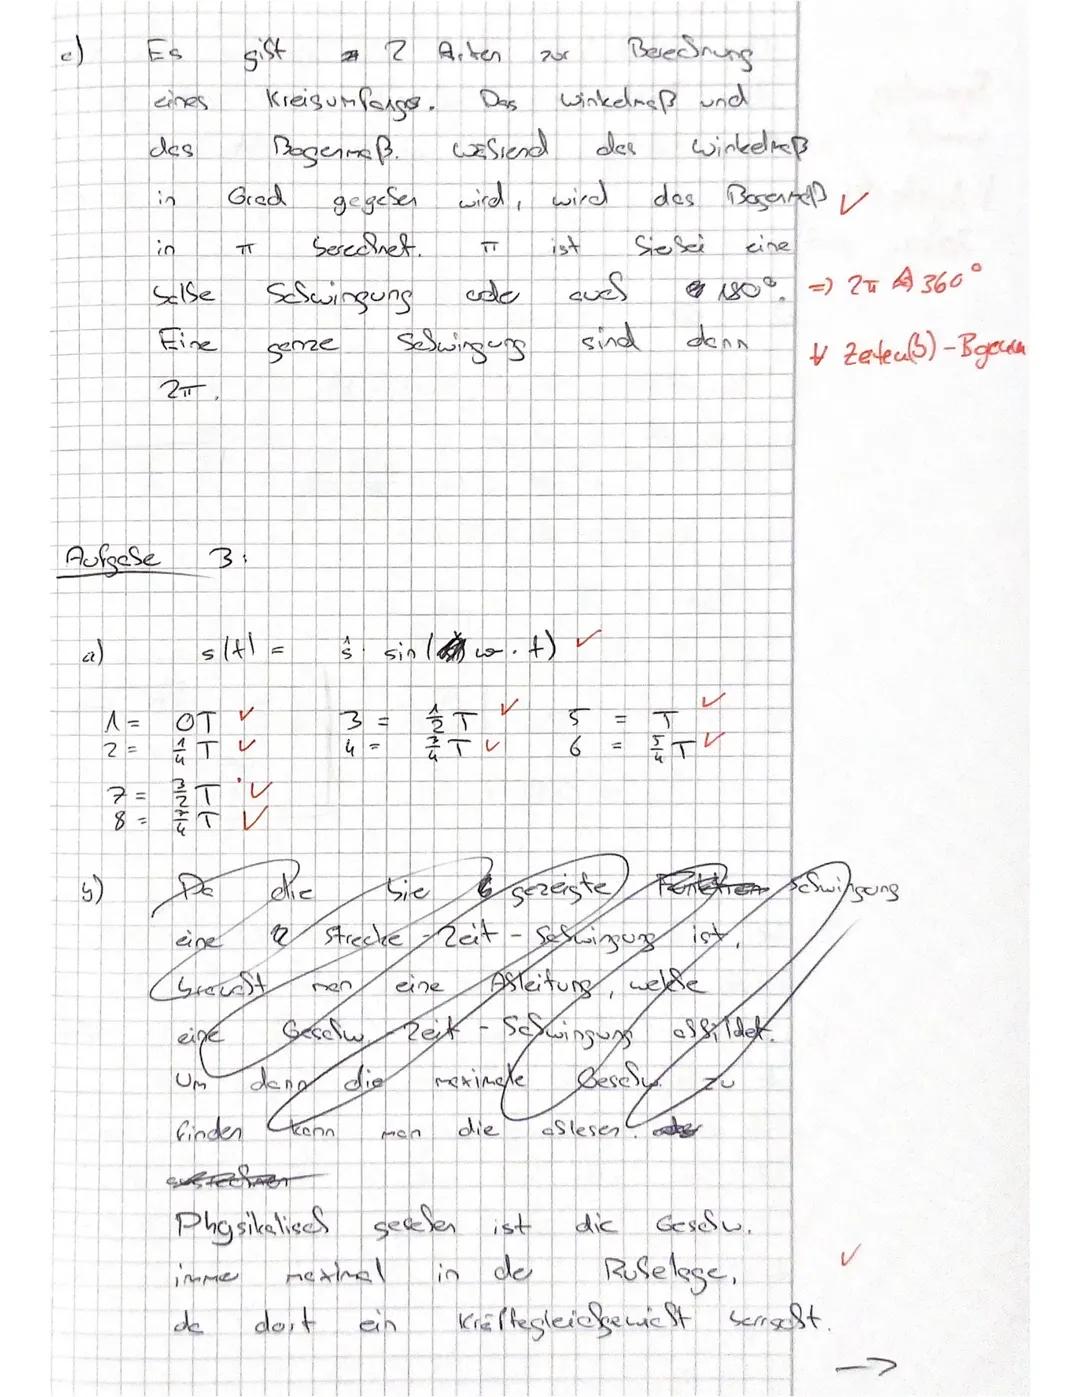 c) Es gibt 2 Arten zur Berechnung
eines Kreisumfangs. Das Winkelmaß und
das Bogenmaß. Während das Winkelmaß
in Grad gegeben wird, wird das Bogenmaß ✓
in π berechnet. π ist hierbei eine
halbe Schwingung oder auch 180°. => 2π ≙ 360°
Eine ganze Schwingung sind dann
2π.
Aufgabe 3:
a) s(t) = ŝ · sin(ω · t) ✓
1 = 0T ✓ 3 = 1/2 T ✓ 5 = T ✓
2 = 1/4 T ✓ 4 = 3/4 T ✓ 6 = 5/4 T ✓
7 = 3/2 T ✓
8 = 7/4 T ✓
b) Da die hie gezeigte Funktion Schwingung
eine Strecke-Zeit-Schwingung ist,
braucht man eine Ableitung, welche
eine Geschw.-Zeit-Schwingung abbildet.
Um dann die maximale Geschw. zu
finden kann man die ablesen.
Physikalisch gesehen ist die Geschw.
imme maximal in de Ruhelage, ✓
da dort ein Kräftegleichgewicht herrscht.
→